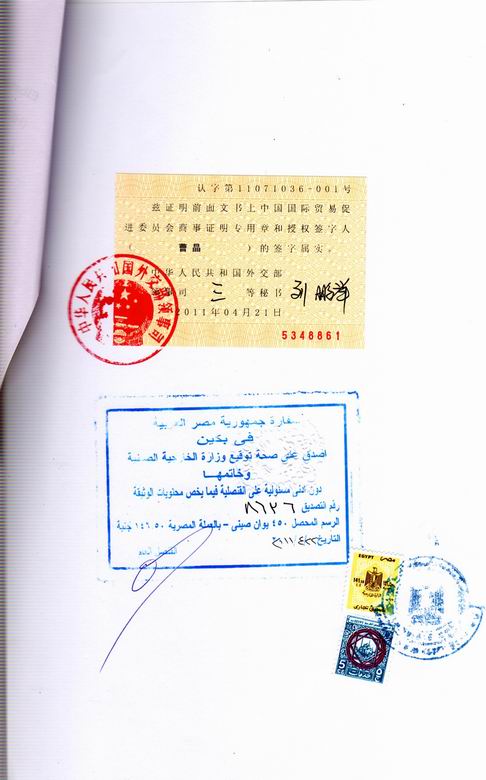 认字第11071036-001号
兹证明前面文书上中国国际贸易促
进委员会商事证明专用章和授权签字人
( 曹晶 ) 的签字属实。
中华人民共和国外交部
司 三 等秘书 刘
2011年04月21日
5348861
中华人民共和国外交部领事司
سفارة جمهورية مصر العربية
فى بكين
اصدق على صحة توقيع وزارة الخارجية الصينية
وخاتمها
دون ادنى مسئولية على القنصلية فيما يخص محتويات الوثيقة
رقم التصديق ٨٦٢٦
الرسم المحصل ٤٥٠ يوان صينى - بالعملة المصرية ١٤٦.٥٠ جنية
التاريخ ٢٠١١/٤/٢٢
EGYPT مصر
5 ٥